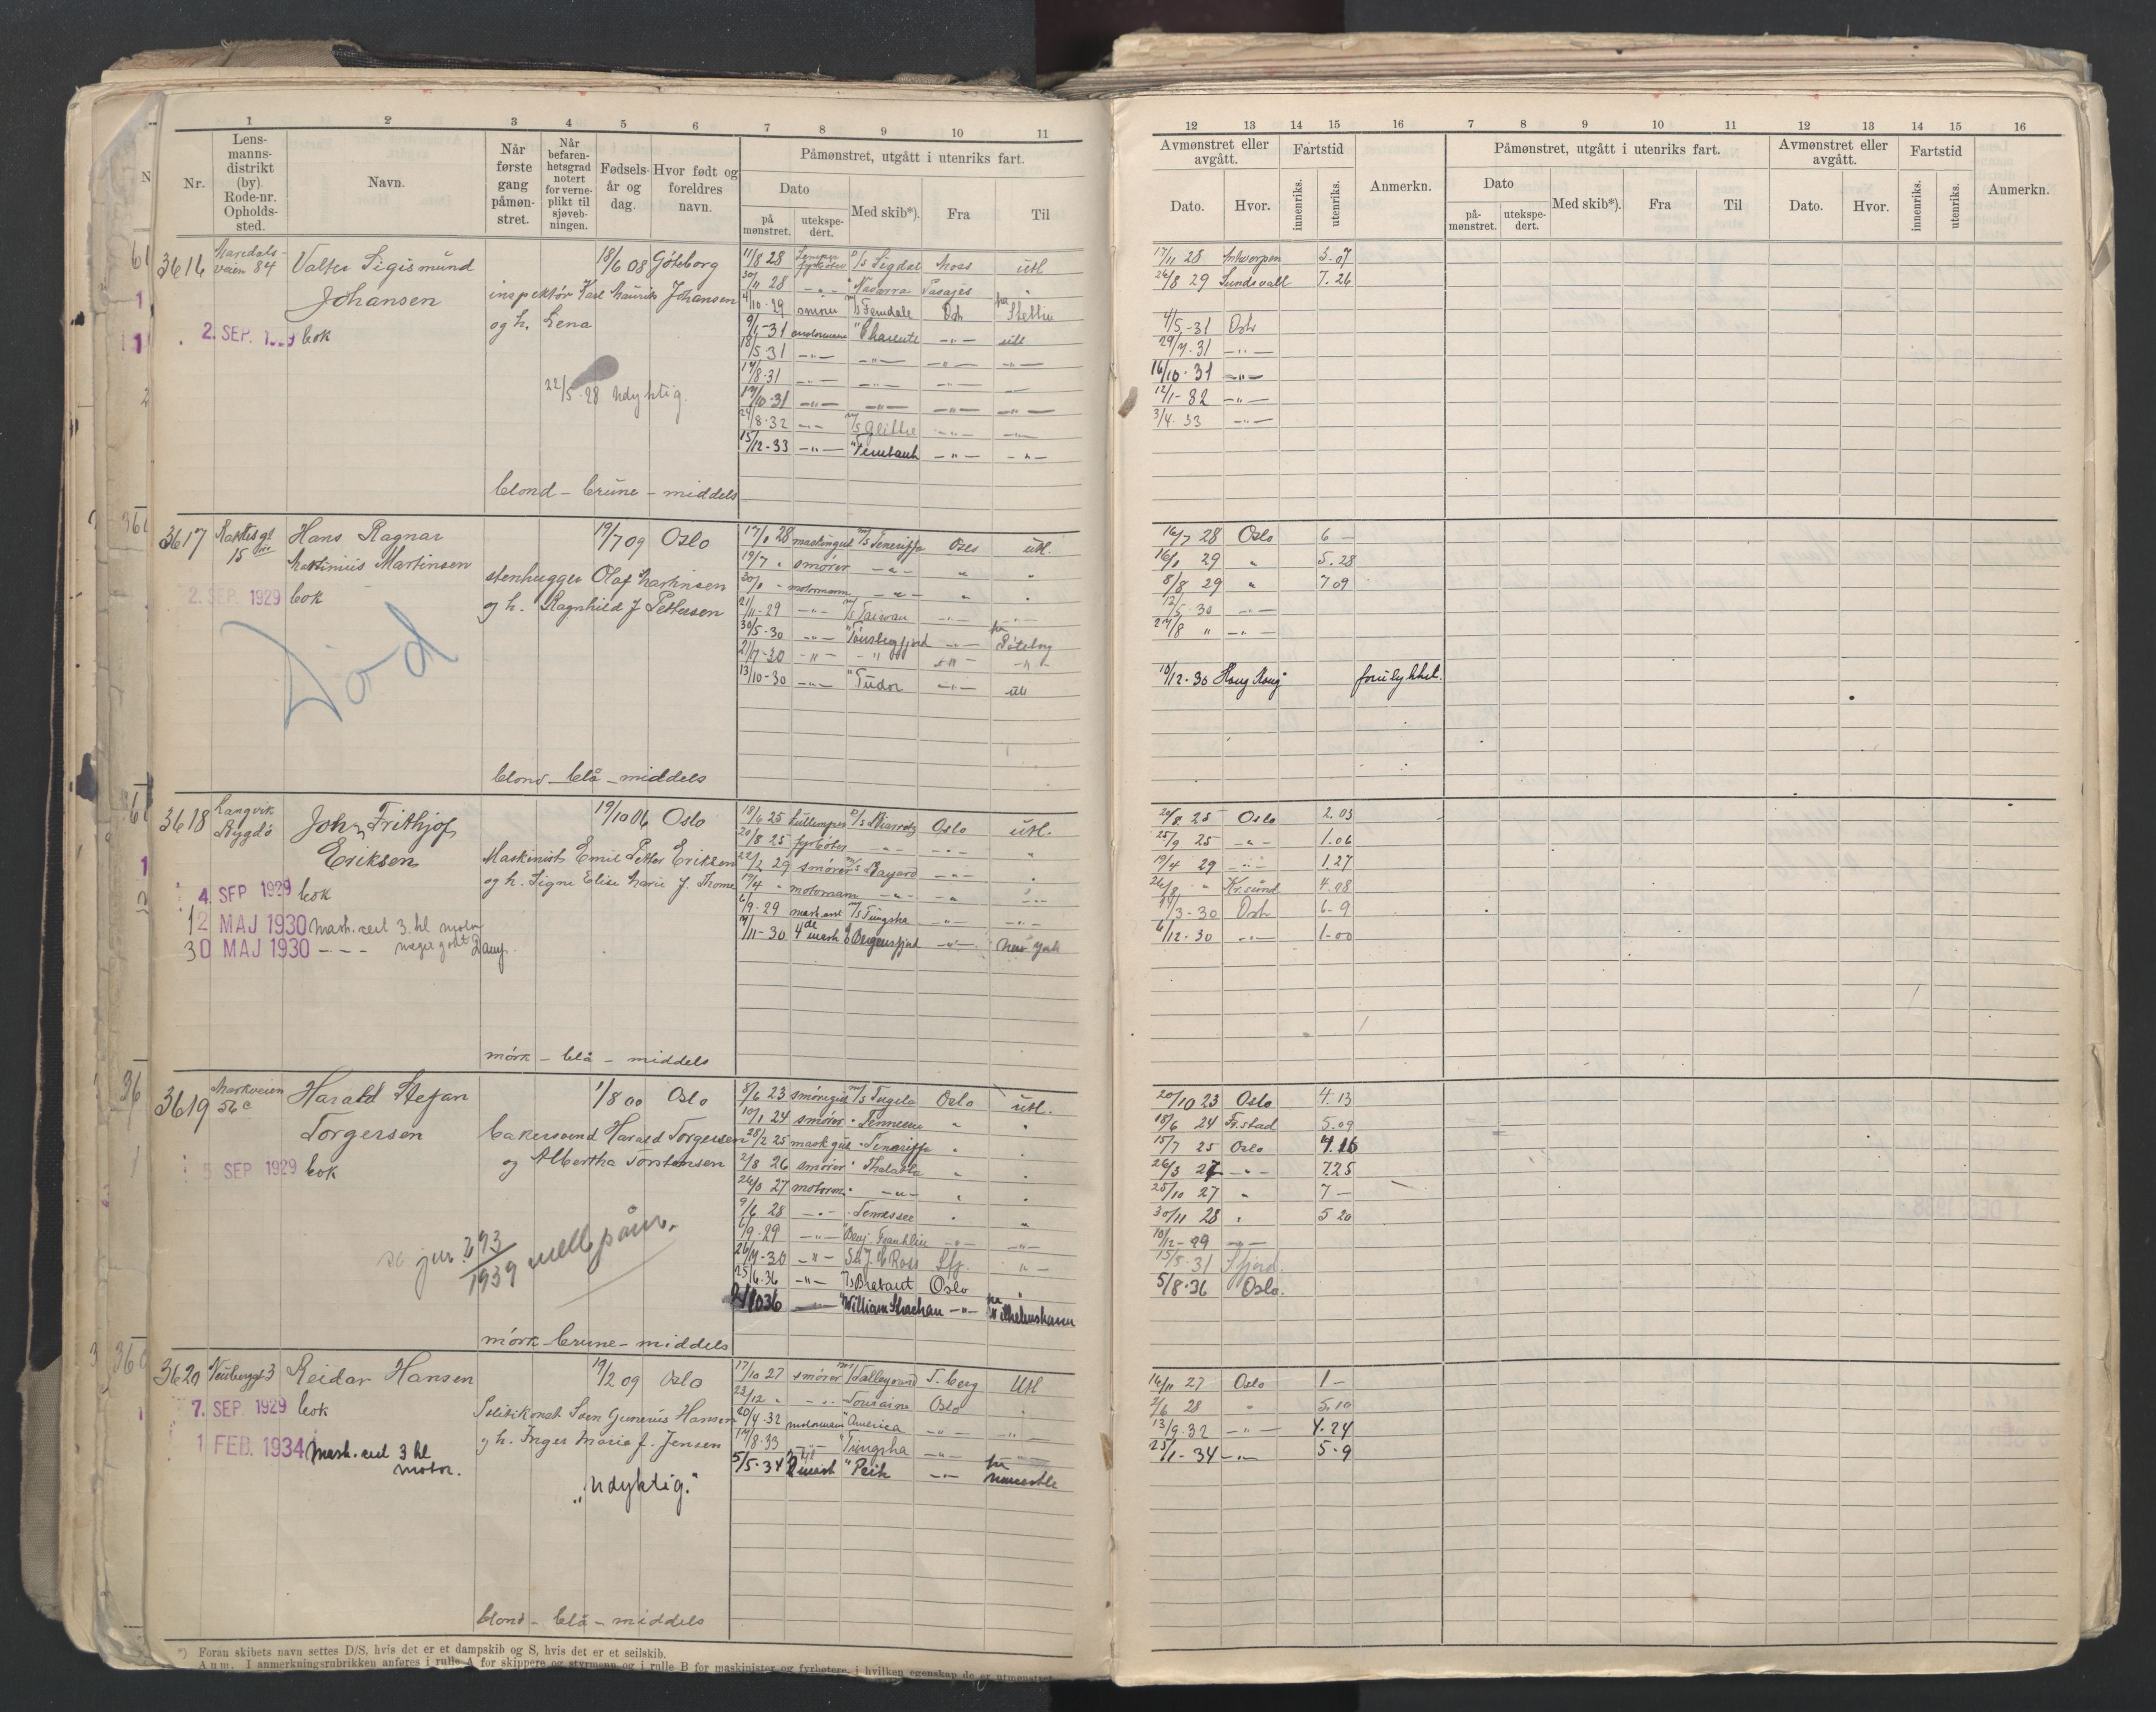 1 2 3 4 5 6 7 8 9 10 11
Nr.
Lens-
manns-
distrikt
(by).
Rode-nr.
Opholds-
sted.
Navn.
Når
første
gang
påmøn-
stret.
Når
befaren-
hetsgrad
notert
for verne-
plikt til
sjøveb-
ningen.
Fødsels-
år og
dag.
Hvor født og
foreldres
navn.
Påmønstret, utgått i utenriks fart.
Dato
på
mønstret.
utekspe-
dert.
Med skib*).
Fra
Til
12 13 14 15 16 7 8 9 10 11 12 13 14 15 16
Avmønstret eller
avgått.
Fartstid
Dato.
Hvor.
innenriks.
utenriks.
Anmerkn.
Påmønstret, utgått i utenriks fart.
Dato
på-
mønstret.
utekspe-
dert.
Med skib*).
Fra
Til
Avmønstret eller
avgått.
Fartstid
Dato.
Hvor.
innenriks.
utenriks.
Anmerkn.
3616 Maridals-
veien 84
Valter Sigismund
Johansen
2. SEP. bok
18/6 08 Göteborg
inspektør Karl Mauritz Johansen
og h. Lena
22/5-28 Udyktig.
blond - brune - middels
11/8 28 Lemper fyrbøter D/S Sigdal Moss utl
30/11 28 -"- " Navarra Pasajes "
4/10-29 smører M/S Ferndale Oslo på Stettin
9/1-31 motormann " Charente -"- utl
18/5 31 -"- -"- -"- -"-
17/8-31 -"- -"- -"- -
17/10-31 -"- -"- -"- -"-
24/8-32 -"- M/S Glittre -"- -"-
15/12-33 -"- " -"- -"-
17/11 28 Antwerpen 3.07
26/8 29 Sundsvall 7.26
4/5-31 Oslo
29/7-31 -"-
16/10-31 -"-
12/1-32 -"-
3/4-33 -"-
3617
15
Hans Ragnar
Martinius Martinsen
2. SEP. 1929 bok
Död
19/7 09 Oslo
stenhugger Olaf Martinsen
og h. Ragnhild f Pettersen
blond - blå - middels
17/1 28 maskingut M/S Teneriffa Oslo utl.
19/7 " smører -"- " "
30/1 - motormann -"- " "
21/11-29 -"- M/S Taiwan -"- -"-
30/5-30 -"- " Tønsbergfjord -"- på Göteborg
21/7-30 -"- -"- -"- -"-
13/10-30 -"- " Tudor -"- utl
16/7 28 Oslo 6 -
16/1 29 " 5.28
8/8 29 " 7 09
12/5-30 -"-
27/8 " -"-
10/12-30 Hong Kong forulykket.
3618 Langvik
Bygdö
John Frithjof
Eriksen
4. SEP 1929 bok
12 MAJ 1930 Mask. cert 3. kl motor
30 MAJ 1930 - - -
19/10 06 Oslo
Maskinist Emil Petter Eriksen
og h. Signe Elise Marie f. Thome
mörk - blå - middels
18/6 25 kullemper D/S Biarritz Oslo utl.
20/8 25 fyrbøter -"- -"- "
22/2 29 smører M/S Bayard -"- "
19/4 " motormann -"- -"- -"-
6/9-29 mask. asst M/S Tungsha -"- -"-
7/11-30 4de mask D/S Bergensfjord -"- New York
20/8 25 Oslo 2.03
25/9 25 -"- 1.06
19/4 29 -"- 1.27
26/8 " Kr.sund 4.08
14/3-30 Oslo 6-9
6/12-30 -"- 1-00
3619 Markveien
56 c
Harald Stefan
Torgersen
5 SEP 1929 bok
1/8 00 Oslo
bakersvend Harald Torgersen
og Albertha Torstensen
se jur. 293/1939 vedk påm.
mörk - brune - middels
8/6 23 smøregut M/S Tugela Oslo utl.
10/1 24 smører " "
28/2 25 mask gut " Teneriffa " "
2/8 26 smører " Thalatta " "
26/3 27 motorm. " -"- " "
9/6 28 -"- " Tennessee " "
6/9-29 -"- " Benj. Franklin -"- -"-
26/9-30 -"- Sir J. C Ross Sfj. "-
25/6-36 -"- M/S Brabant Oslo "
2/10 36 -"- " William Strachan -"- på Wilhelmshavn
20/10 23 Oslo 4.13
18/6 24 Fr.stad 5.09
15/7 25 Oslo 4.16
26/3 27 -"- 7.25
25/10 27 " 7 -
30/11 28 " 5 20
10/12-29 -"-
15/5-31 Sfjord.
5/8-36 Oslo.
3620 Neubergt 3
Reidar Hansen
7. SEP. 1929 bok
1 FEB. 1934 Mask. cert 3 kl
motor.
19/2 09 Oslo
Politikonst. Sven Gunerius Hansen
og h. Inger Marie f. Jensen
"Udyktig."
blond - blå - middels
17/10 27 smører M/S Talleyrand T.berg Utl
23/12 " -"- " Touraine Oslo "
20/4-32 motormann " America -"- -"-
17/8-33 -"- " Tungsha -"- -"-
5/5-34 2 mask " Peik -"- på Newcastle
16/11 27 Oslo 1 -
2/6 28 " 5.10
13/9-32 -"- 4-24
25/1-34 -"- 5-9
*) Foran skibets navn settes D/S, hvis det er et dampskib og S, hvis det er et seilskib.
Anm. I anmerkningsrubrikken anføres i rulle A for skippere og styrmenn og i rulle B for maskinister og fyrbøtere, i hvilken egenskap de er utmønstret